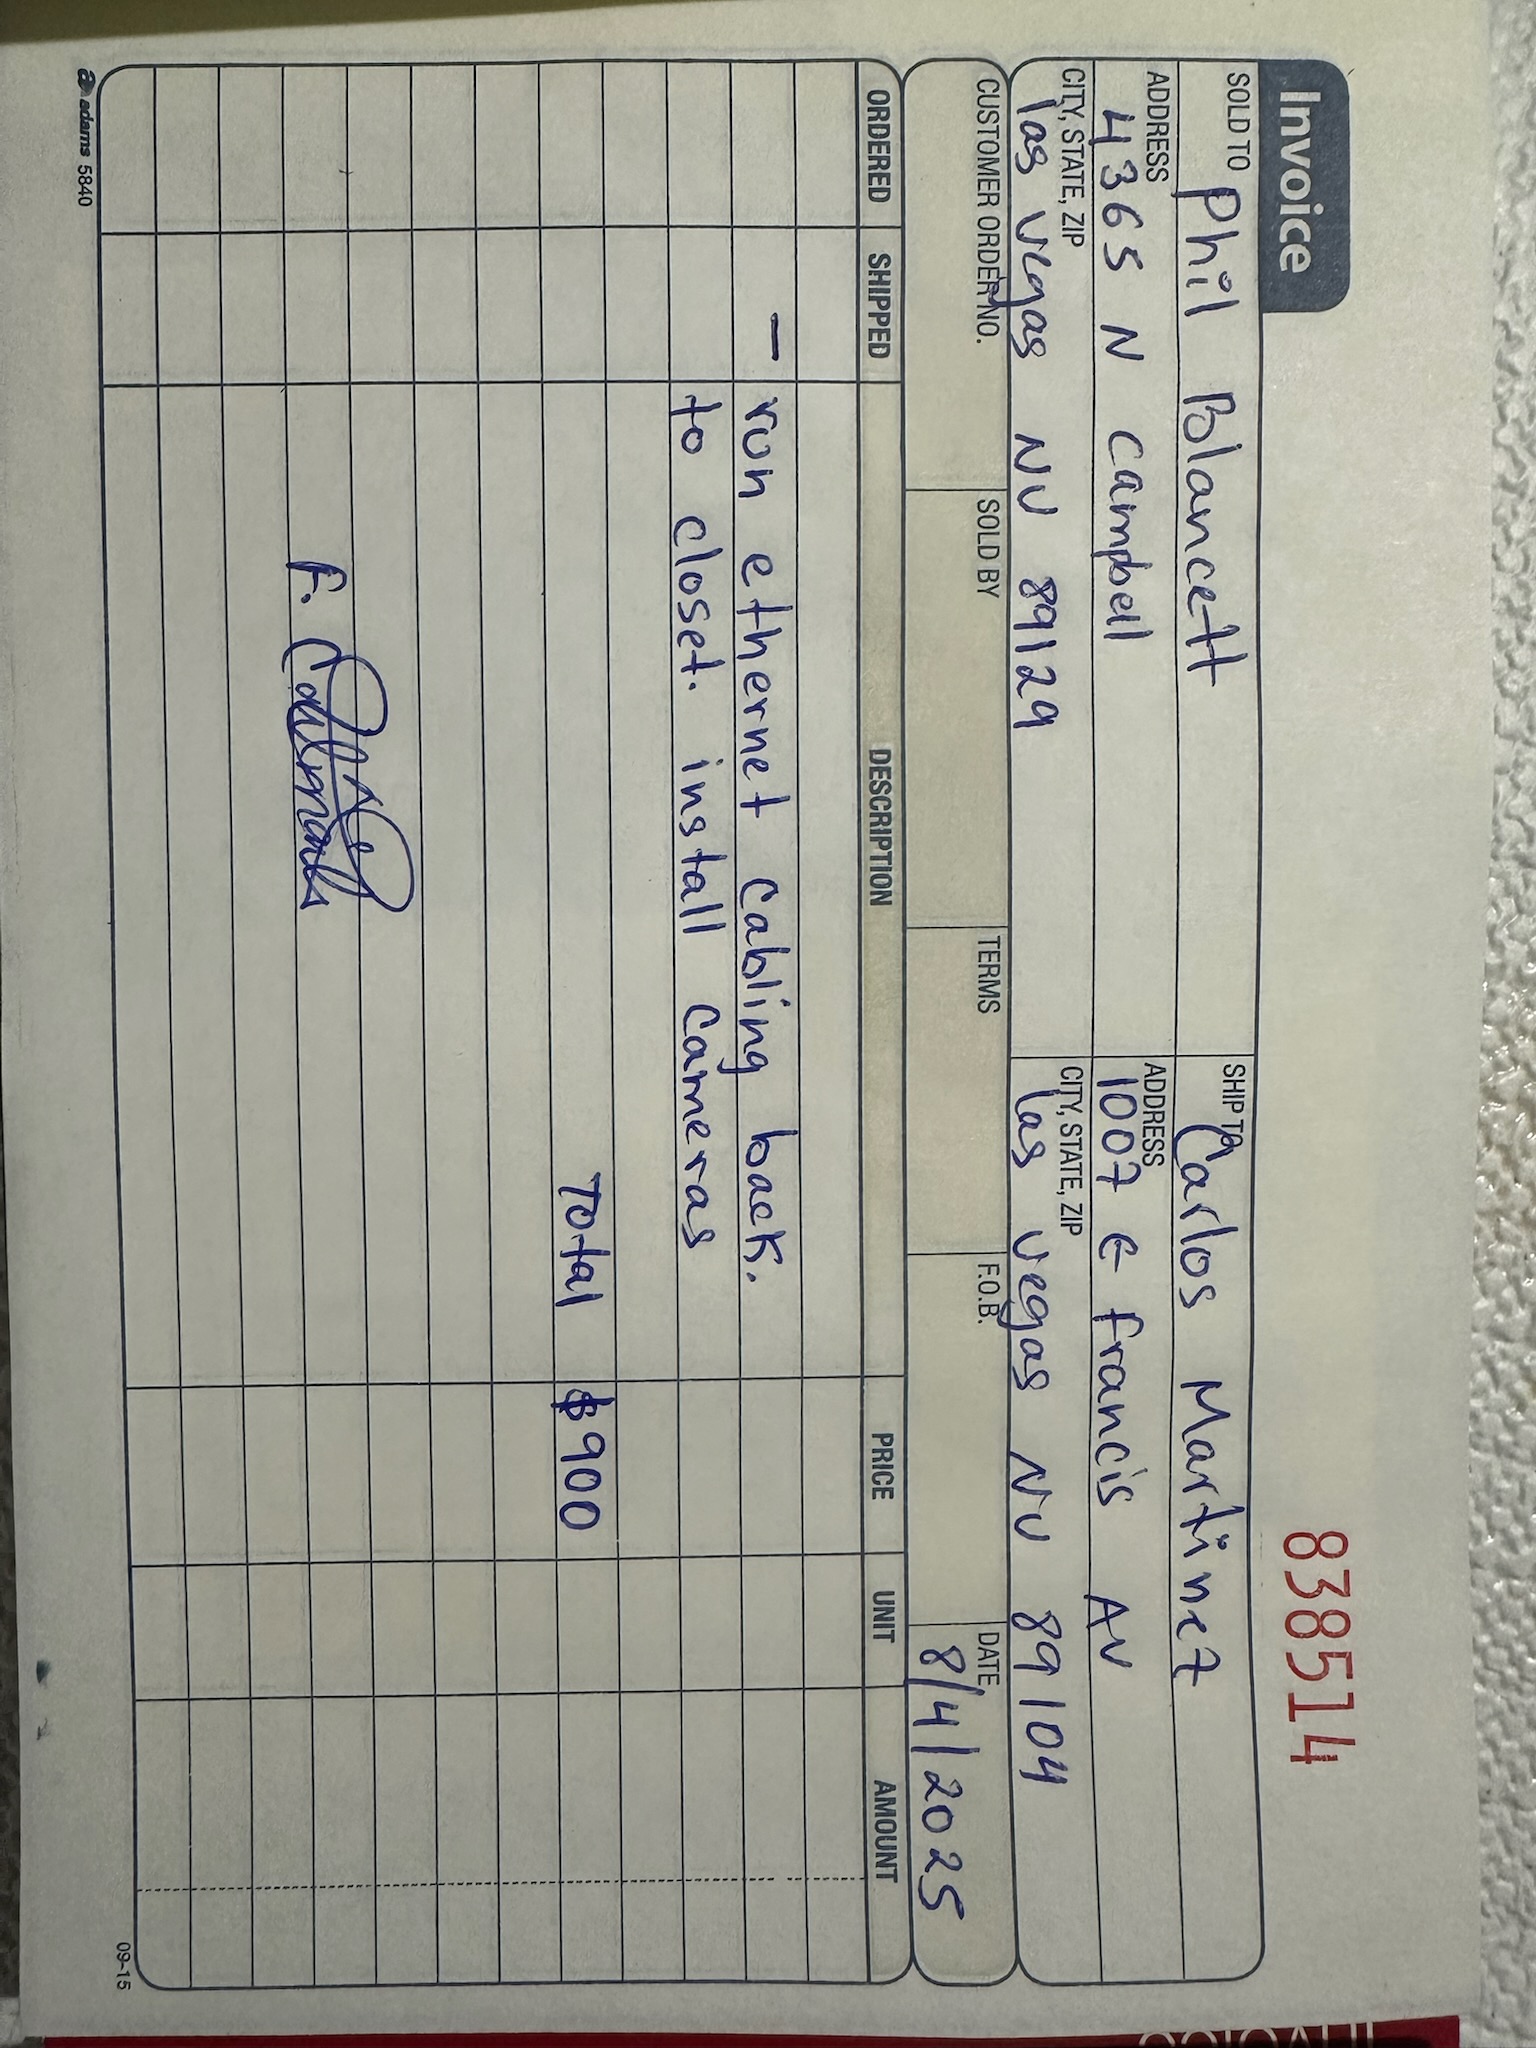 Invoice
838514
SOLD TO Phil Blancett
SHIP TO Carlos Martinez
ADDRESS 4365 N Campbell
ADDRESS 1007 E francis AV
CITY, STATE, ZIP las vegas NV 89129
CITY, STATE, ZIP las vegas NV 89104
CUSTOMER ORDER NO. SOLD BY TERMS F.O.B. DATE 8/4/2025
ORDERED SHIPPED DESCRIPTION PRICE UNIT AMOUNT
- run ethernet cabling back.
to closet. install cameras
Total $900
F.
adams 5840
09-15
Invoice